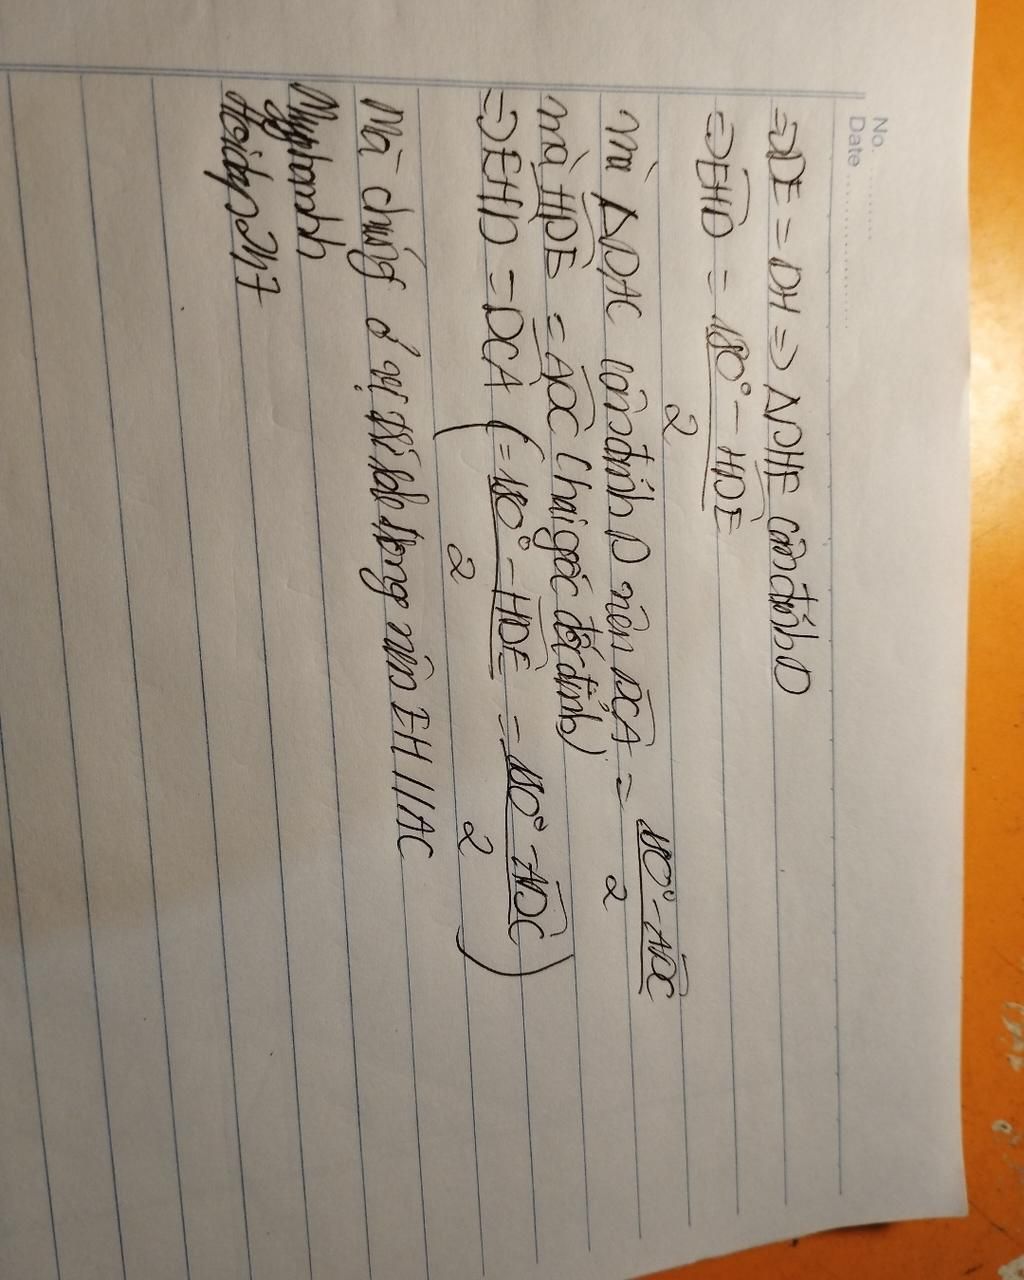 No. ............
Date ............................
=> DE = DH => ΔDHE cân đỉnh D
=> EHD = 180° - HDE / 2
mà ΔDAC cân đỉnh D nên DCA = 180° - ADC / 2
mà HDE = ADC (hai góc đối đỉnh)
=> EHD = DCA (= 180° - HDE / 2 = 180° - ADC / 2)
Mà chúng ở vị trí trong nên EH // AC